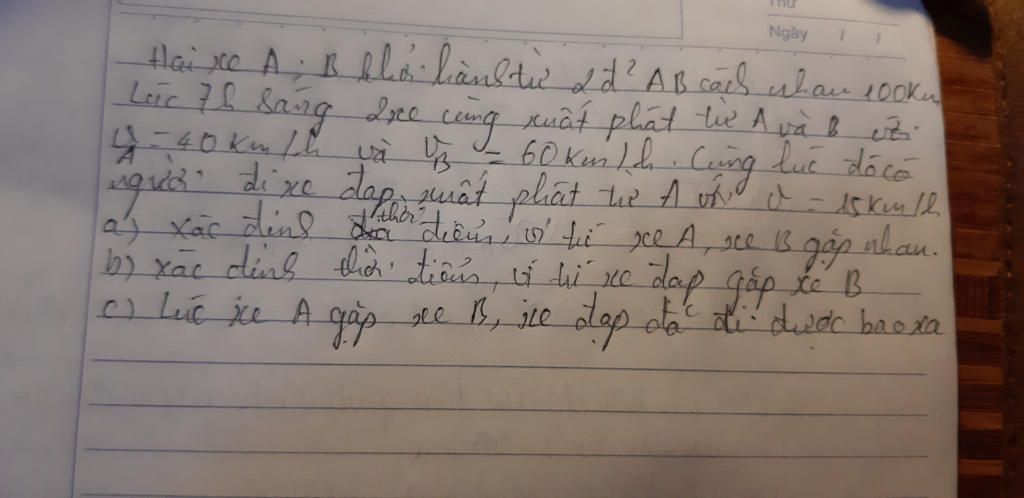 Thứ
Ngày / /
Hai xe A; B khởi hành từ 2 đ² AB cách nhau 100Km
Lúc 7h sáng 2xe cùng xuất phát từ A và B với
V_A = 40 Km/h và V_B = 60 Km/h. Cùng lúc đó có
người đi xe đạp xuất phát từ A với v = 15 Km/h
a) xác định thời điểm, vị trí xe A, xe B gặp nhau.
b) xác định thời điểm, vị trí xe đạp gặp xe B
c) Lúc xe A gặp xe B, xe đạp đã đi được bao xa